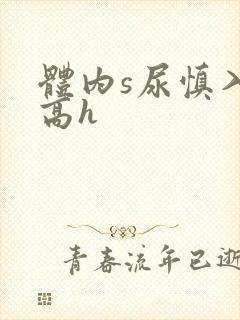 體內s尿慎入
高h
青春流年已逝